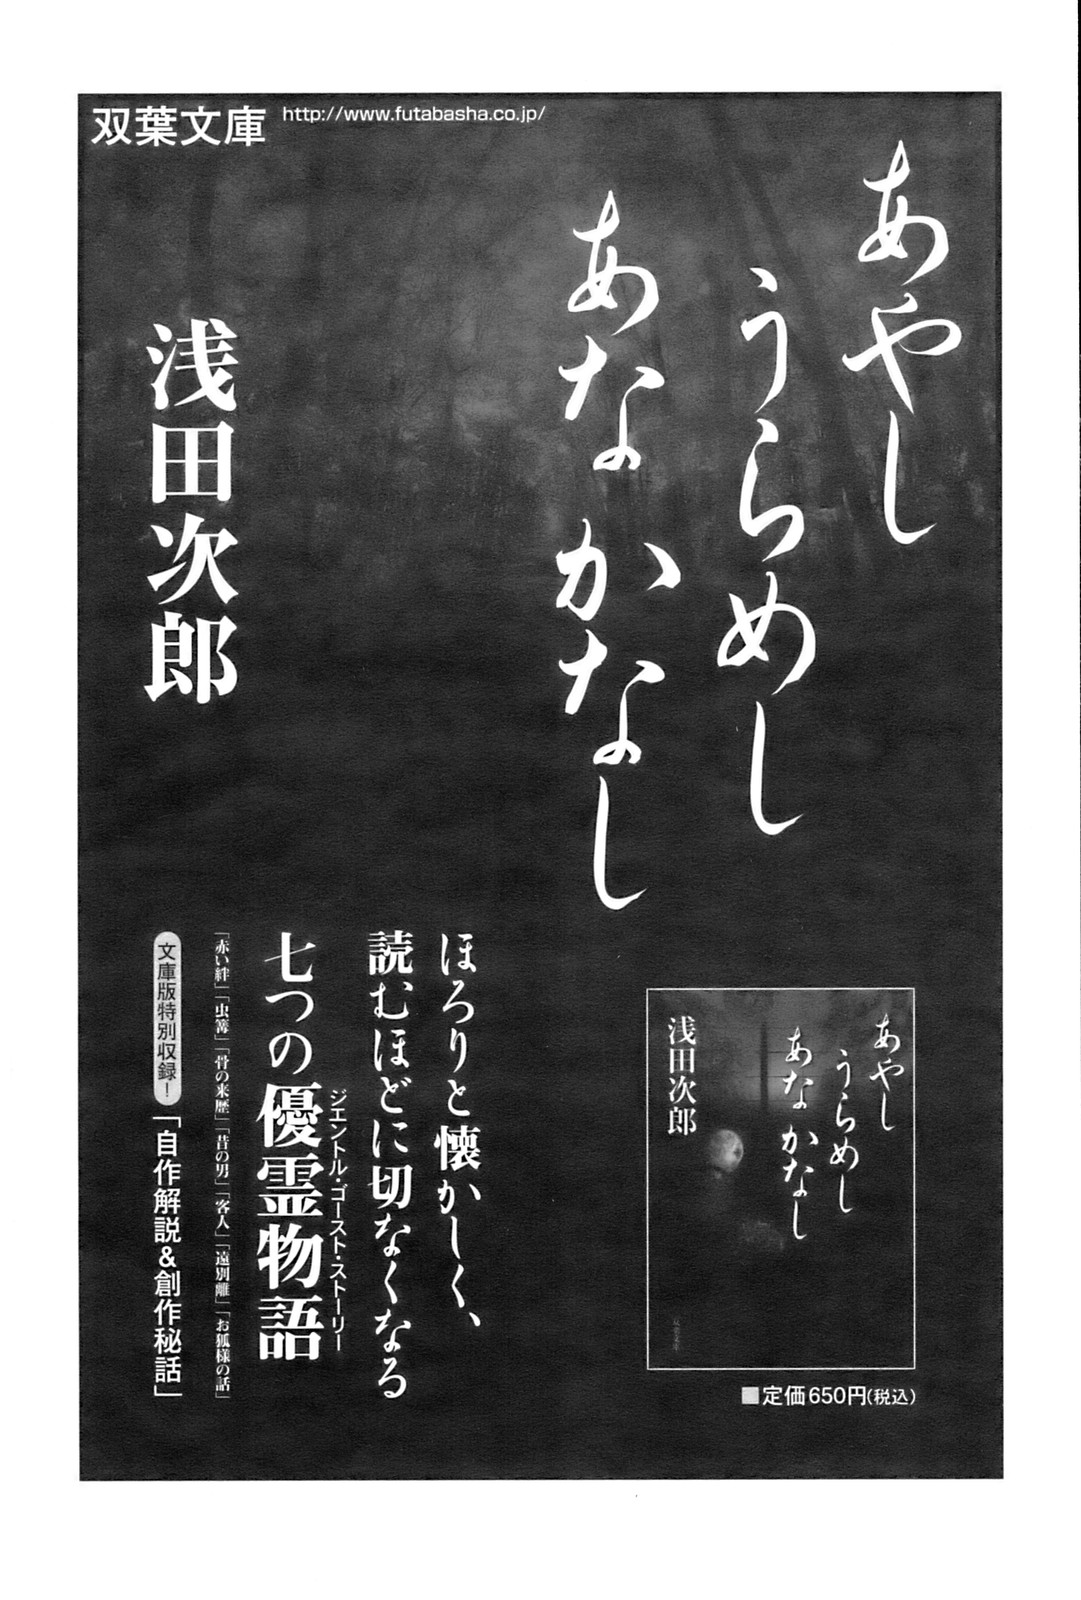 双葉文庫
http://www.futabasha.co.jp/
あやし
うらめし
あな かなし
浅田次郎
ほろりと懐かしく、
読むほどに切なくなる
七つの優霊物語
ジェントル・ゴースト・ストーリー
「赤い絆」「虫篝」「骨の来歴」「昔の男」「客人」「遠別離」「お狐様の話」
文庫版特別収録！
「自作解説&創作秘話」
あやし
うらめし
あな かなし
浅田次郎
双葉文庫
■定価650円(税込)